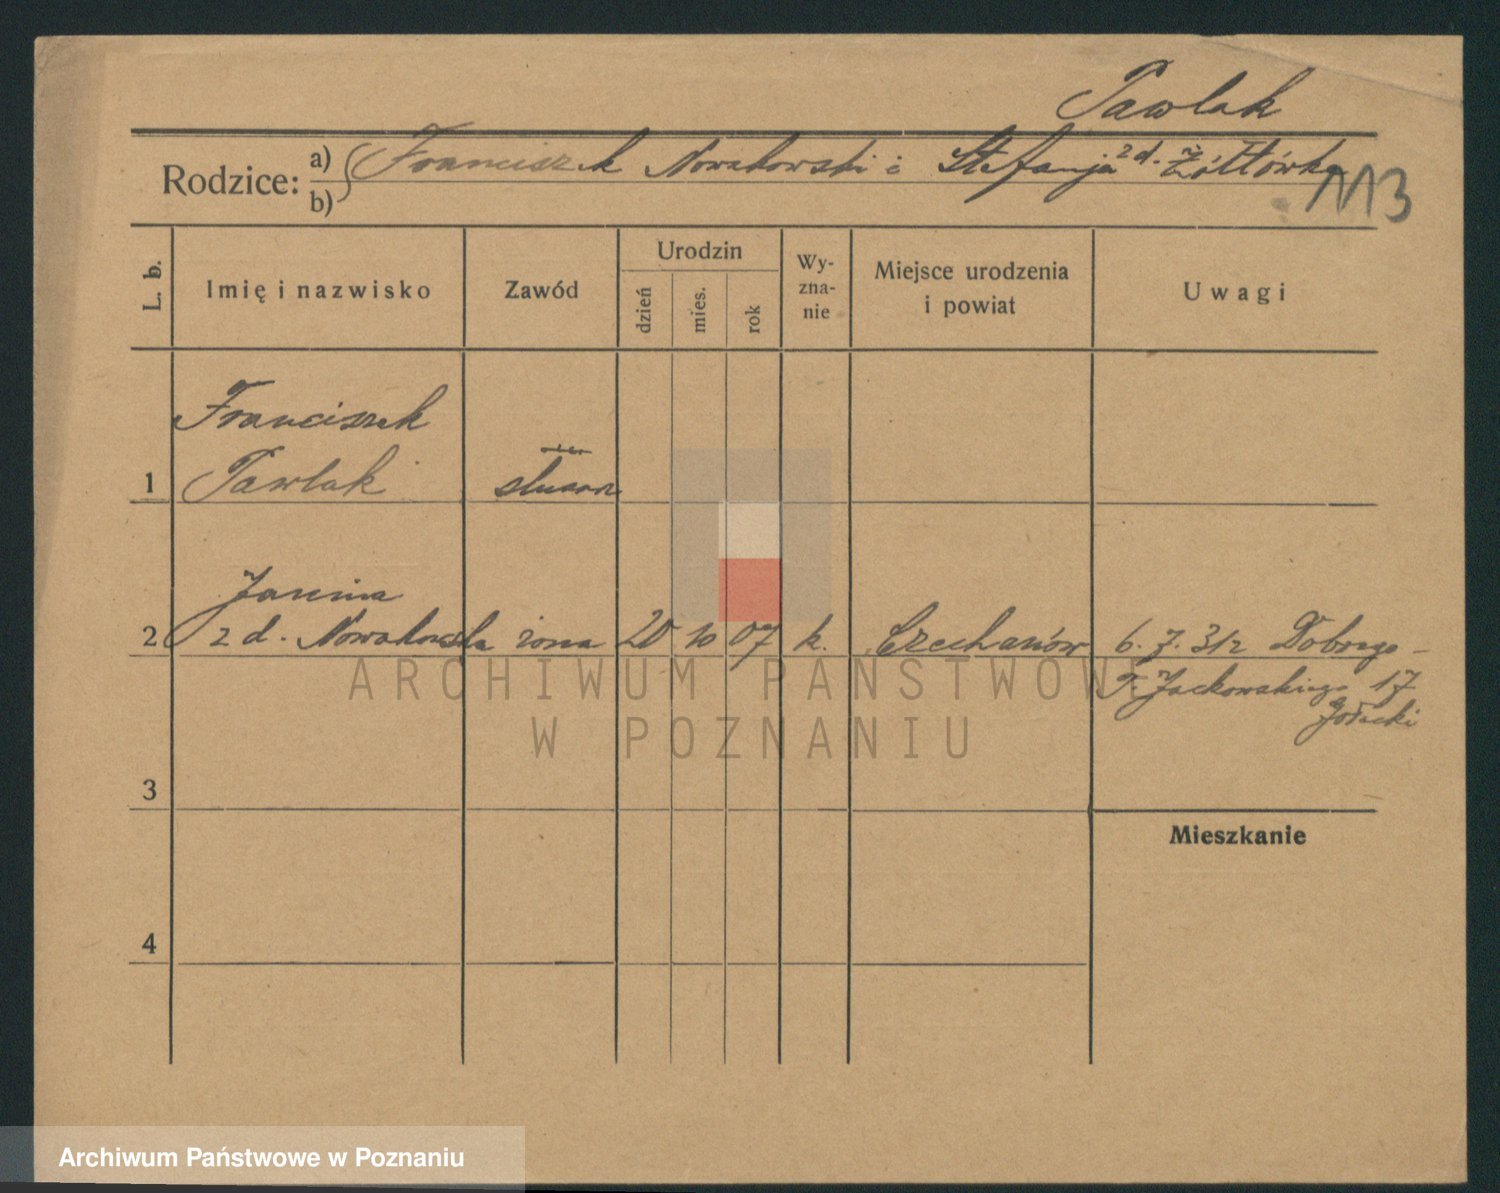 Pawlak
Rodzice: a) Franciszek Nowakowski i Stefanja z d. Żółtówka
b)
113
L. b.
Imię i nazwisko
Zawód
Urodzin
dzień
mies.
rok
Wy-
zna-
nie
Miejsce urodzenia
i powiat
Uwagi
Franciszek
1 Pawlak
Janina
2 z d. Nowakowska żona 20 10 07 k. Czechanów 6. 7. 31 z
Jackowskiego 17
3
Mieszkanie
4
ARCHIWUM PAŃSTWOWE
W POZNANIU
Archiwum Państwowe w Poznaniu